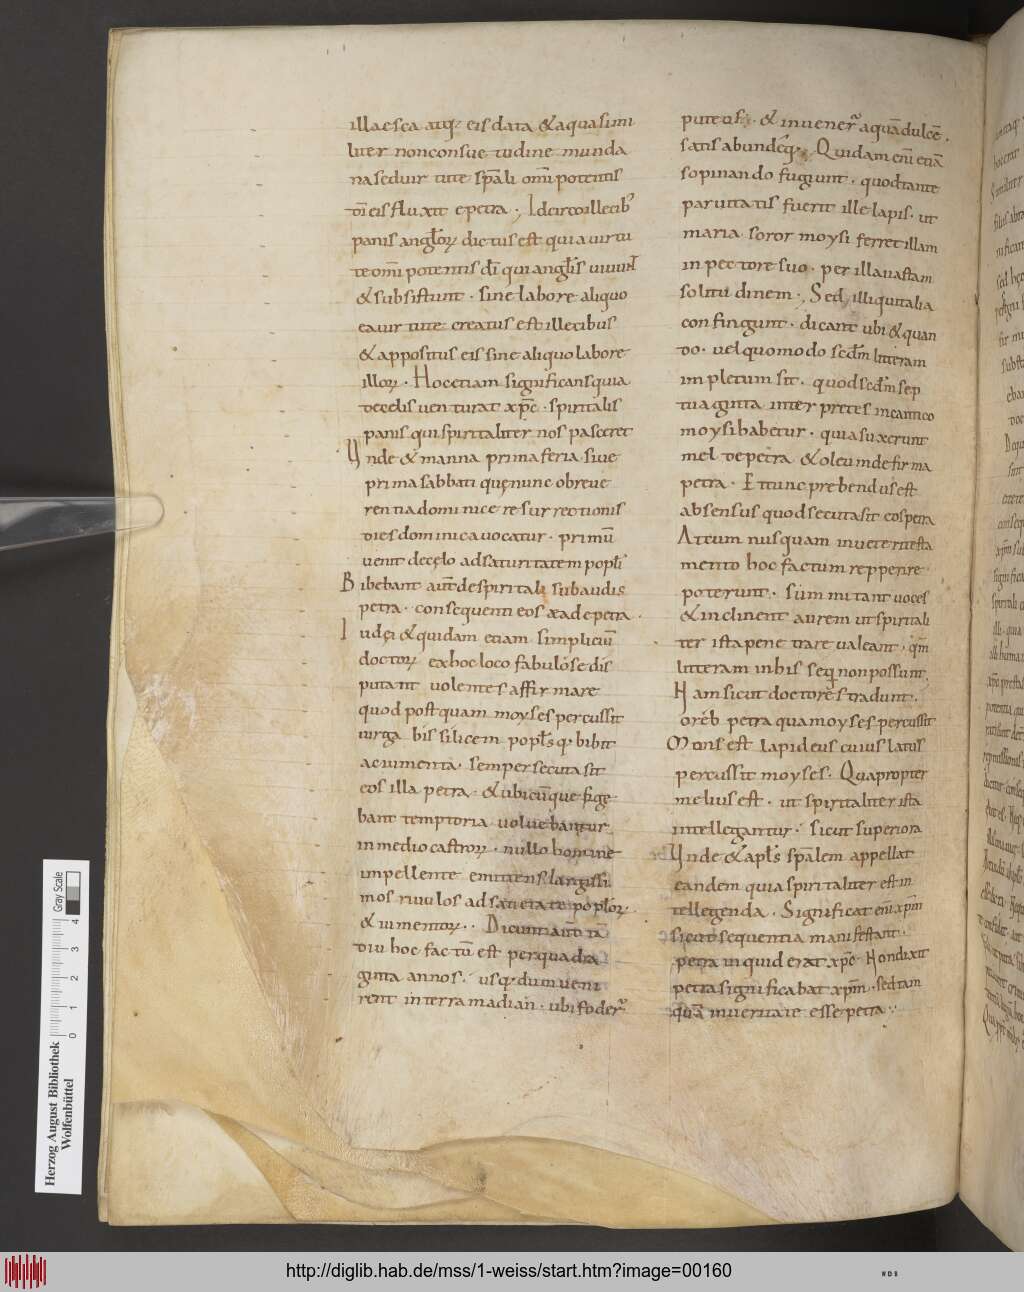 illaesca atq; eis data & aqua simi
liter non consuetudine munda
na sed uirtute sp̄ali om̄ipotentis
dī eis fluxit e petra. Idcirco illecib;
panis anglōꝝ dictus est quia uirtu
te om̄ipotentis dī qui anglīs uiuunt
& subsistunt. sine labore aliquo
ea uirtute creatus est ille cibus
& appositus eis sine aliquo labore
illoꝝ. Hoc etiam significans quia
de cęlis uenturat xp̄c. spiritalis
panis qui spiritaliter nos pasceret
Unde & manna prima feria siue
prima sabbati quę nunc ob reue
rentia dominice resurrectionis
dies dominica uocatur. primū
uenit de cęlo ad saturitatem popłi
Bibebant aut̄ de spiritali subaudis
petra. consequenti eos
Iudęi & quidam etiam simpliciū
doctoꝝ ex hoc loco fabulose dis
putant uolentes affirmare
quod postquam moyses percussit
uirga bis silicem popłsq; bibit
ac iumenta. semper secuta sit
eos illa petra. & ubicūque fige
bant temptoria uoluebantur
in medio castroꝝ. nullo homine
impellente emittens largissi
mos riuulos ad satietate popłoꝝ.
& iumentoꝝ. Dicunt aut̄ tā
diu hoc factū est per quadra
ginta annos. usq; dum ueni
rent in terra madian. ubi foder̄
puteus. & inuener̄ aquā dulcē.
satis abundēq;. Quidam enī etiā
sopinando fugiunt. quod tante
paruitatis fuerit ille lapis. ut
maria soror moysi ferret illam
in pectore suo. per illa uastam
solitudinem. Sed illi qui talia
confingunt. dicant ubi & quan
do. uel quomodo scdm̄ litteram
impletum sit. quod scdm̄ sep
tuaginta interpretes in cantico
moysi habetur. quia suxerunt
mel de petra & oleum de firma
petra. Et tunc prebendus est
absensus quod secuta sit eos petra
At cum nusquam in ueteri testa
mento hoc factum repperire
poterunt. summitant uoces
& inclinent aurem ut spiritali
ter ista penetrare ualeant. qm̄
litteram in his sequi non possunt.
Nam sicut doctores tradunt.
oreb petra quam moyses percussit
Mons est lapideus cuius latus
percussit moyses. Quapropter
melius est. ut spiritaliter ista
intellegantur. sicut superiora
Unde & apłs sp̄alem appellat
eandem quia spiritaliter est in
tellegenda. Significat enī xp̄m
sicut sequentia manifestant.
petra inquid erat xp̄c. Non dixit
petra significabat xp̄m. sed tam
quā in ueritate esse petra
Gray Scale
0 1 2 3 4
Herzog August Bibliothek
Wolfenbüttel
http://diglib.hab.de/mss/1-weiss/start.htm?image=00160